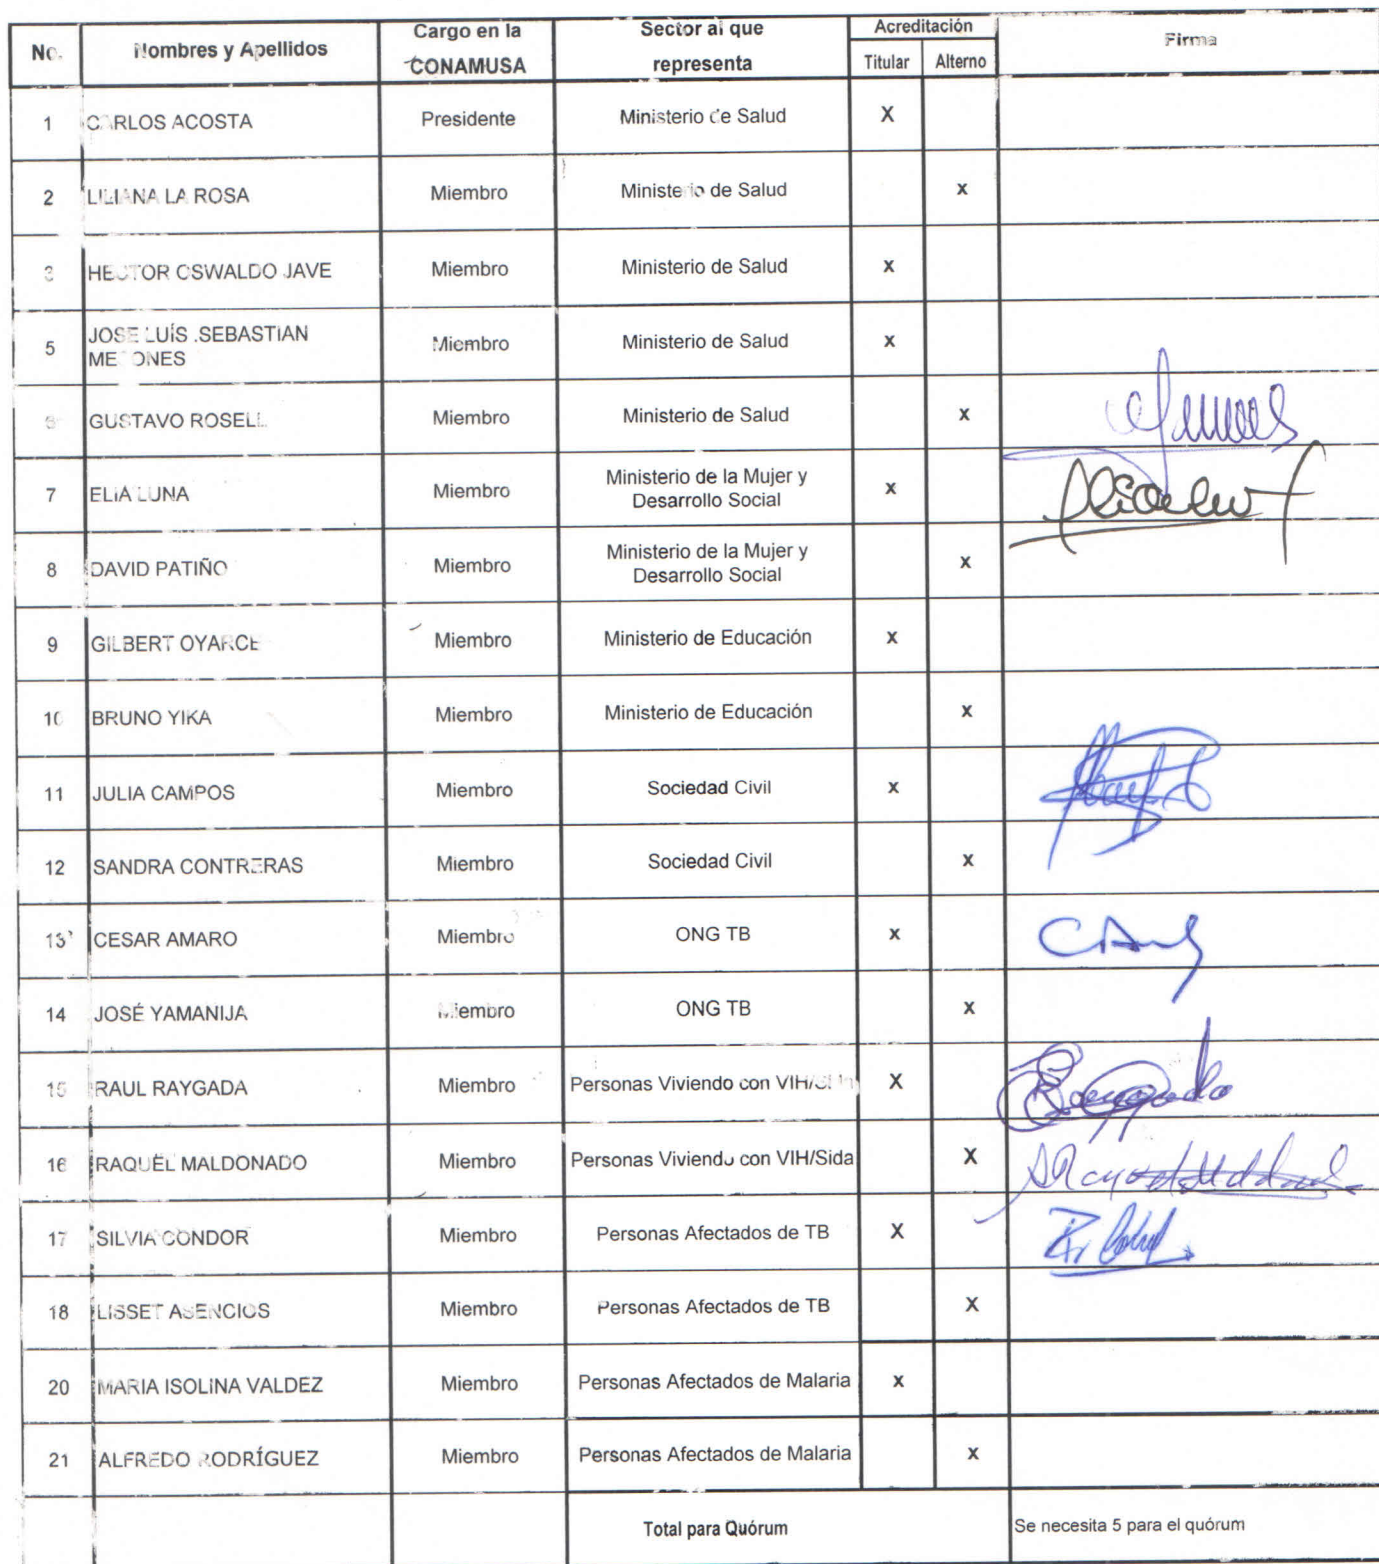 No. Nombres y Apellidos Cargo en la CONAMUSA Sector al que representa Acreditación Firma
Titular Alterno
1 CARLOS ACOSTA Presidente Ministerio de Salud X
2 LILIANA LA ROSA Miembro Ministerio de Salud x
3 HECTOR OSWALDO JAVE Miembro Ministerio de Salud x
5 JOSE LUÍS SEBASTIAN Miembro Ministerio de Salud x
6 GUSTAVO ROSELL Miembro Ministerio de Salud x
7 ELIA LUNA Miembro Ministerio de la Mujer y Desarrollo Social x
8 DAVID PATIÑO Miembro Ministerio de la Mujer y Desarrollo Social x
9 GILBERT OYARCE Miembro Ministerio de Educación x
10 BRUNO YIKA Miembro Ministerio de Educación x
11 JULIA CAMPOS Miembro Sociedad Civil x
12 SANDRA CONTRERAS Miembro Sociedad Civil x
13 CESAR AMARO Miembro ONG TB x
14 JOSÉ YAMANIJA Miembro ONG TB x
15 RAUL RAYGADA Miembro Personas Viviendo con VIH/Sida X
16 RAQUEL MALDONADO Miembro Personas Viviendo con VIH/Sida X
17 SILVIA CONDOR Miembro Personas Afectados de TB X
18 LISSET ASENCIOS Miembro Personas Afectados de TB X
20 MARIA ISOLINA VALDEZ Miembro Personas Afectados de Malaria x
21 ALFREDO RODRÍGUEZ Miembro Personas Afectados de Malaria x
Total para Quórum Se necesita 5 para el quórum